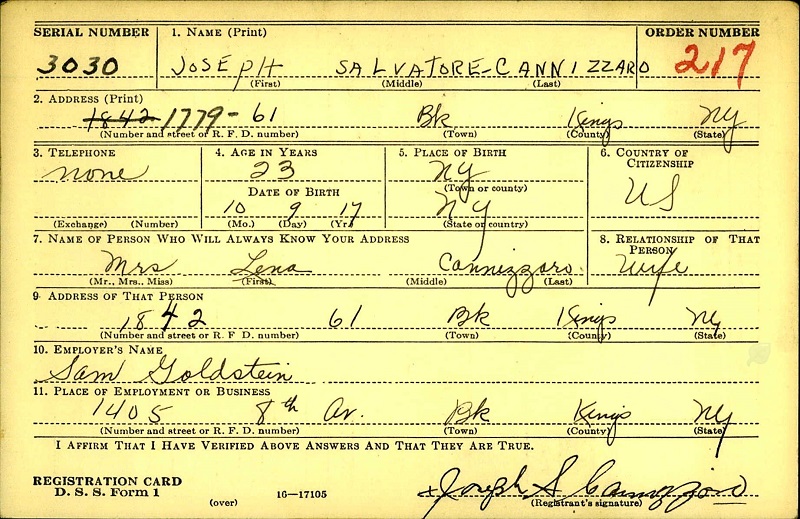 SERIAL NUMBER 1. NAME (Print) ORDER NUMBER
3030 JOSEPH SALVATORE-CANNIZZARO 217
(First) (Middle) (Last)
2. ADDRESS (Print)
1842 1779- 61 Bk Kings NY
(Number and street or R. F. D. number) (Town) (County) (State)
3. TELEPHONE 4. AGE IN YEARS 5. PLACE OF BIRTH 6. COUNTRY OF CITIZENSHIP
none 23 NY US
DATE OF BIRTH (Town or county)
10 9 17 NY
(Exchange) (Number) (Mo.) (Day) (Yr.) (State or country)
7. NAME OF PERSON WHO WILL ALWAYS KNOW YOUR ADDRESS 8. RELATIONSHIP OF THAT PERSON
Mrs Lena Cannizzaro. Wife
(Mr., Mrs., Miss) (First) (Middle) (Last)
9. ADDRESS OF THAT PERSON
1842 61 Bk Kings NY
(Number and street or R. F. D. number) (Town) (County) (State)
10. EMPLOYER'S NAME
Sam Goldstein
11. PLACE OF EMPLOYMENT OR BUSINESS
1405 8th Av. Bk Kings NY
(Number and street or R. F. D. number) (Town) (County) (State)
I AFFIRM THAT I HAVE VERIFIED ABOVE ANSWERS AND THAT THEY ARE TRUE.
REGISTRATION CARD x Joseph S Cannizzaro
D. S. S. Form 1 (over) 16—17105 (Registrant's signature)